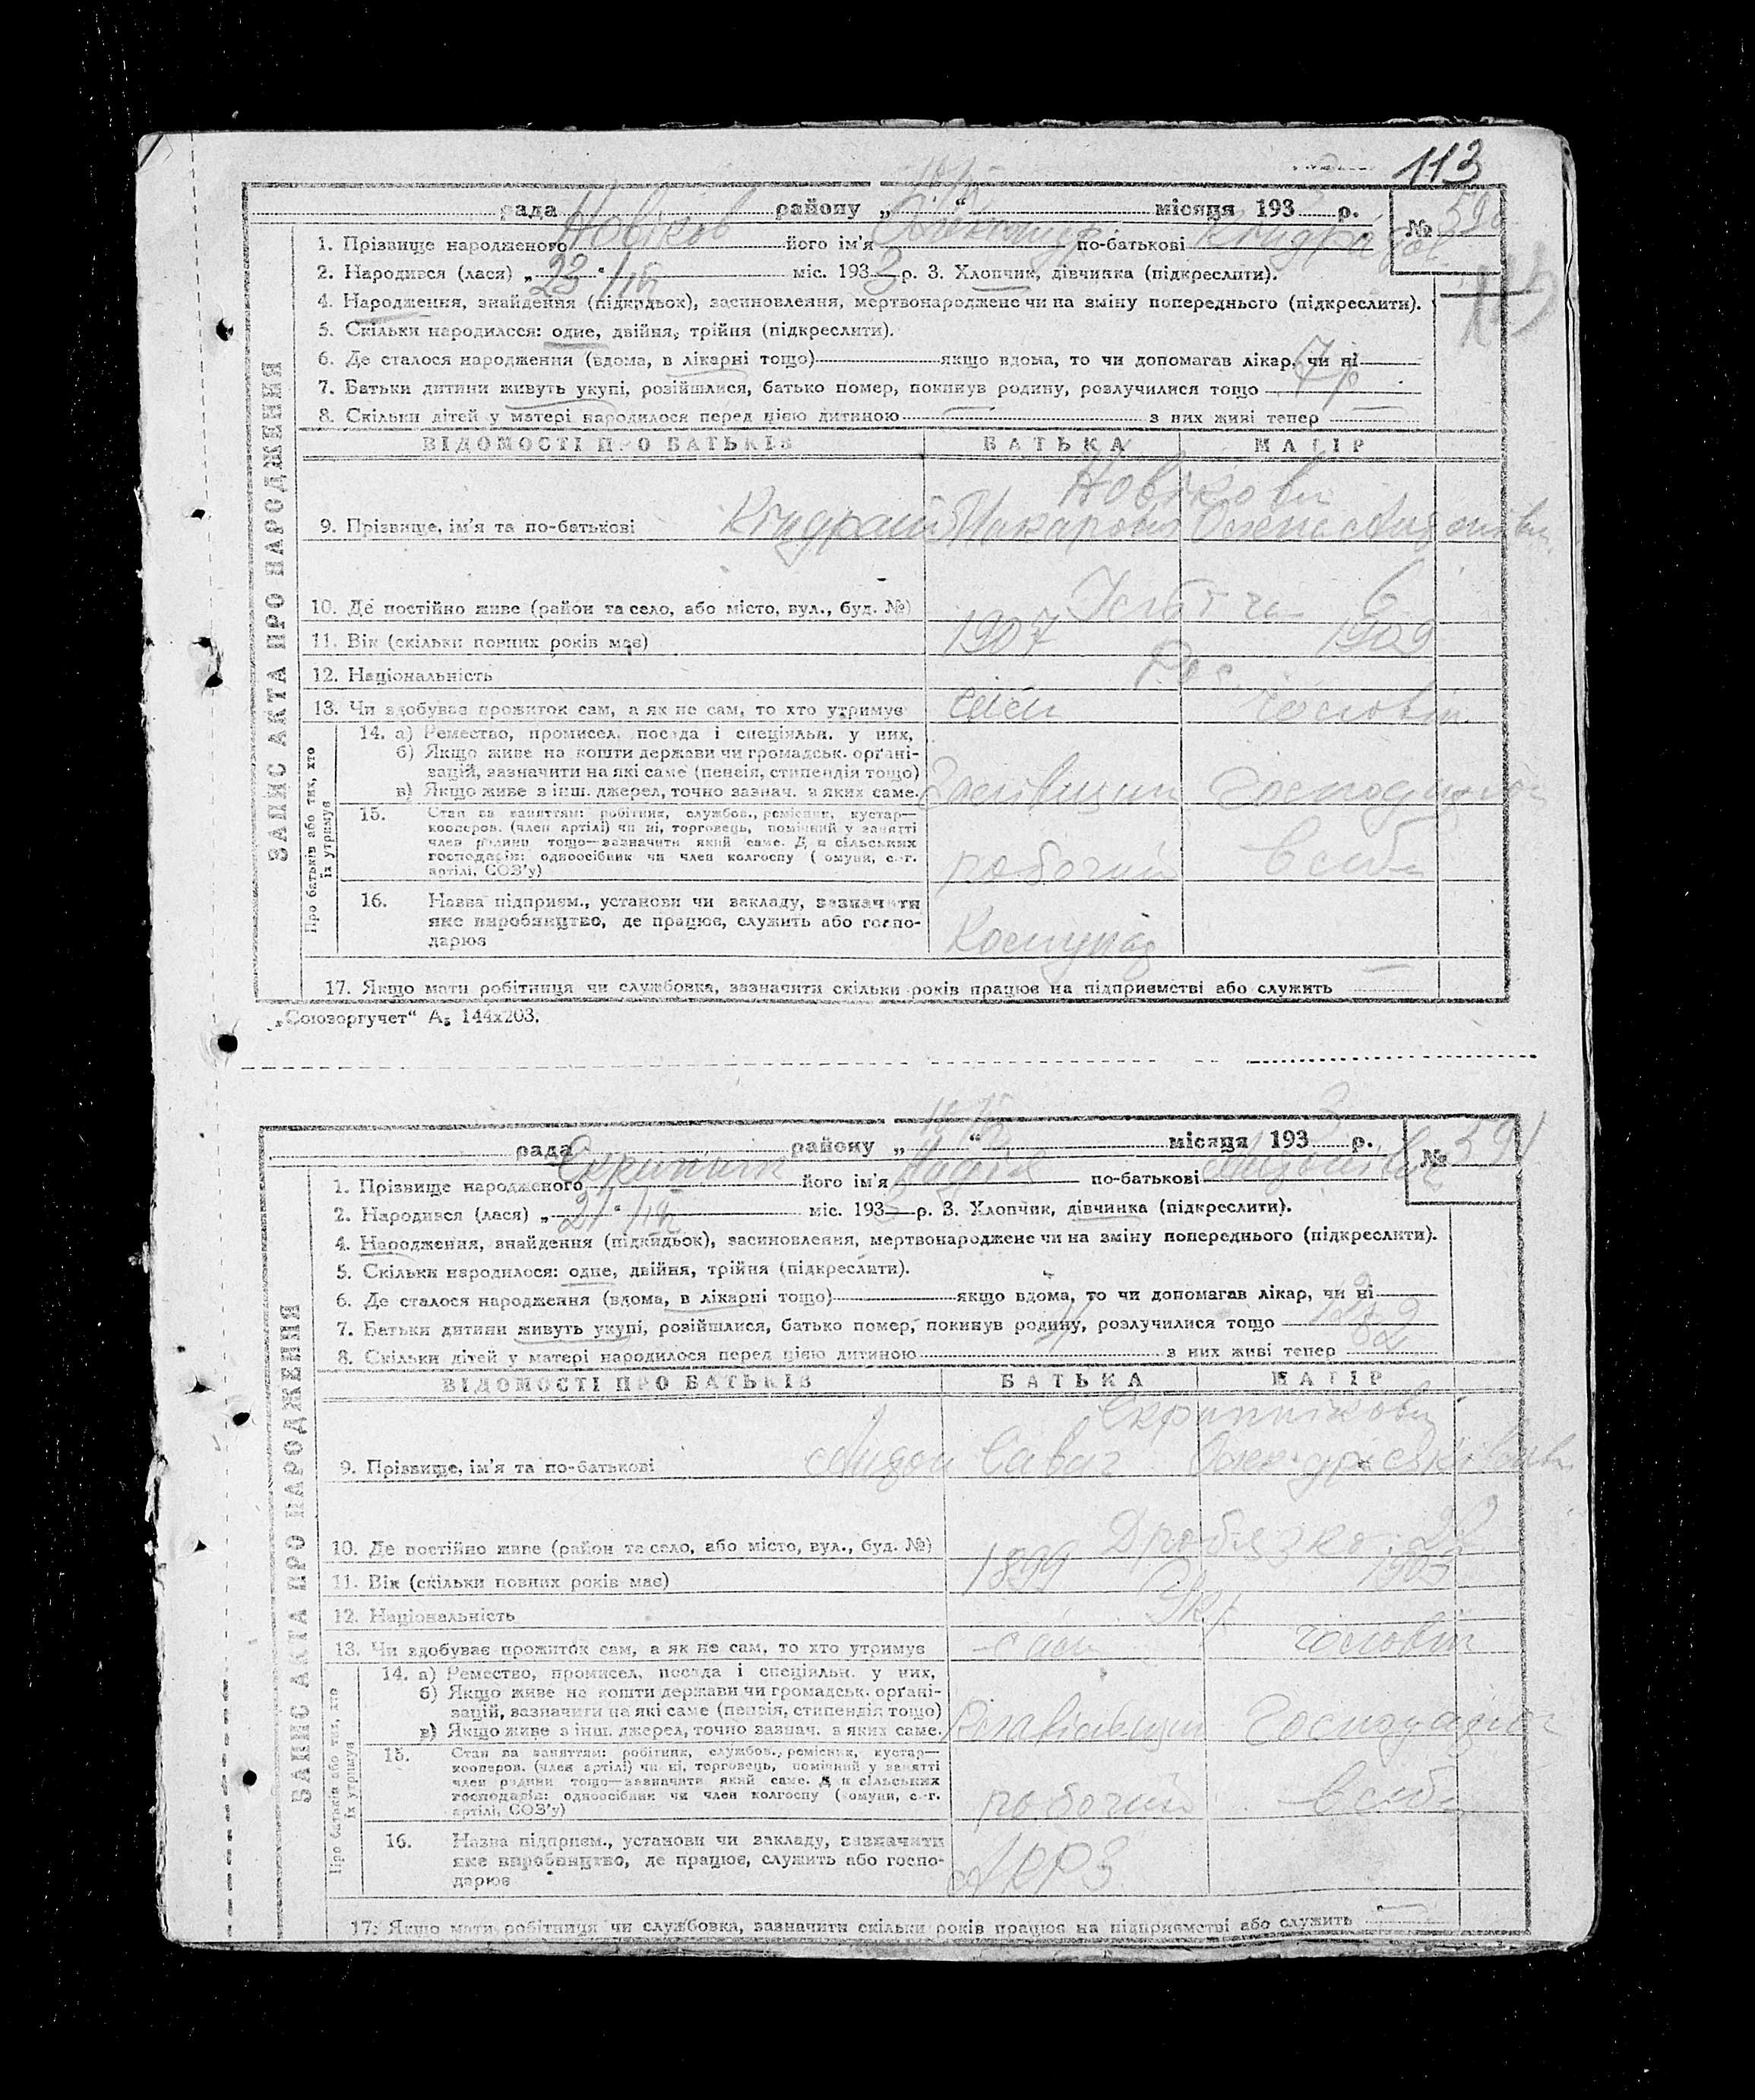 113
рада району „ “ місяця 193 р. №
1. Прізвище народженого Новіков його ім'я по-батькові
2. Народився (лася) „23“ міс. 1933 р. 3. Хлопчик, дівчинка (підкреслити).
4. Народження, знайдення (підкидьок), засиновлення, мертвонароджене чи на зміну попереднього (підкреслити).
5. Скільки народилося: одне, двійня, трійня (підкреслити).
6. Де сталося народження (вдома, в лікарні тощо) якщо вдома, то чи допомагав лікар, чи ні
7. Батьки дитини живуть укупі, розійшлися, батько помер, покинув родину, розлучилися тощо
8. Скільки дітей у матері народилося перед цією дитиною — з них живі тепер —
ЗАПИС АКТА ПРО НАРОДЖЕННЯ
ВІДОМОСТІ ПРО БАТЬКІВ БАТЬКА МАТІР
Новікови
9. Прізвище, ім'я та по-батькові Макарович Олена
10. Де постійно живе (район та село, або місто, вул., буд. №) 6
11. Вік (скільки повних років має) 1907 1909
12. Національність Рос.
13. Чи здобуває прожиток сам, а як не сам, то хто утримує сам чоловік
Про батьків або тих, хто їх утримує
14. а) Ремество, промисел, посада і спеціяльн. у них,
б) Якщо живе на кошти держави чи громадськ. органі-
зацій, зазначити на які саме (пенсія, стипендія тощо)
в) Якщо живе з інш. джерел, точно зазнач. з яких саме.
15. Стан за заняттям: робітник, службов., ремісник, кустар—
кооперов. (член артілі) чи ні, торговець, помічний у занятті
член родини тощо—зазначити який саме. Для сільських
господарів: одноосібник чи член колгоспу (комуни, с.-г.
артілі, СОЗ'у)
робочий
16. Назва підприєм., установи чи закладу, зазначити
яке виробництво, де працює, служить або госпо-
дарює
17. Якщо мати робітниця чи службовка, зазначити скільки років працює на підприємстві або служить —
„Союзоргучет“ А5 144х203.
рада району „ “ місяця 1933 р. № 591
1. Прізвище народженого Скрипник його ім'я Надія по-батькові
2. Народився (лася) „21“ міс. 193 р. 3. Хлопчик, дівчинка (підкреслити).
4. Народження, знайдення (підкидьок), засиновлення, мертвонароджене чи на зміну попереднього (підкреслити).
5. Скільки народилося: одне, двійня, трійня (підкреслити).
6. Де сталося народження (вдома, в лікарні тощо) якщо вдома, то чи допомагав лікар, чи ні
7. Батьки дитини живуть укупі, розійшлися, батько помер, покинув родину, розлучилися тощо
8. Скільки дітей у матері народилося перед цією дитиною з них живі тепер 2
ЗАПИС АКТА ПРО НАРОДЖЕННЯ
ВІДОМОСТІ ПРО БАТЬКІВ БАТЬКА МАТІР
Скрипнікови
9. Прізвище, ім'я та по-батькові
10. Де постійно живе (район та село, або місто, вул., буд. №) Дробязко 22
11. Вік (скільки повних років має) 1899
12. Національність Укр.
13. Чи здобуває прожиток сам, а як не сам, то хто утримує сам чоловік
Про батьків або тих, хто їх утримує
14. а) Ремество, промисел, посада і спеціяльн. у них,
б) Якщо живе на кошти держави чи громадськ. органі-
зацій, зазначити на які саме (пенсія, стипендія тощо)
в) Якщо живе з інш. джерел, точно зазнач. з яких саме.
15. Стан за заняттям: робітник, службов., ремісник, кустар—
кооперов. (член артілі) чи ні, торговець, помічний у занятті
член родини тощо—зазначити який саме. Для сільських
господарів: одноосібник чи член колгоспу (комуни, с.-г.
артілі, СОЗ'у)
робочий
16. Назва підприєм., установи чи закладу, зазначити
яке виробництво, де працює, служить або госпо-
дарює
АРРЗ
17. Якщо мати робітниця чи службовка, зазначити скільки років працює на підприємстві або служить —